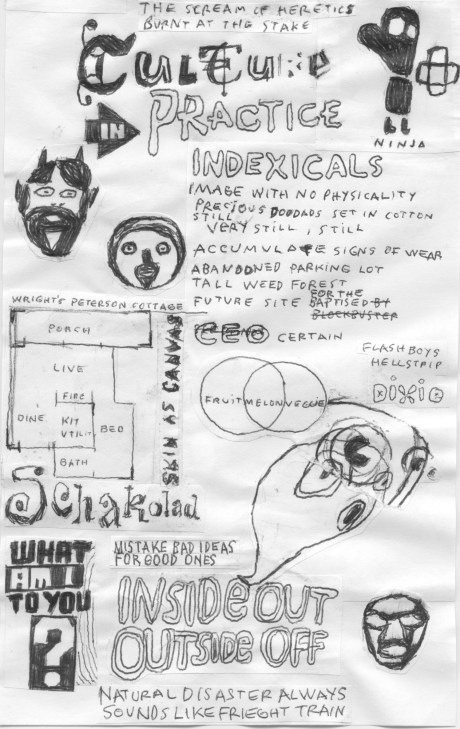 THE SCREAM OF HERETICS
BURNT AT THE STAKE
CULTURE
IN
PRACTICE
NINJA
INDEXICALS
IMAGE WITH NO PHYSICALITY
PRECIOUS DOODADS SET IN COTTON
STILL
VERY STILL, STILL
ACCUMULATE SIGNS OF WEAR
ABANDONED PARKING LOT
TALL WEED FOREST
FOR THE
FUTURE SITE BAPTISED BY
BLOCKBUSTER
CEO CERTAIN
WRIGHT'S PETERSON COTTAGE
PORCH
LIVE
FIRE
DINE
KIT
UTILIT
BED
BATH
SKIN AS CANVAS
FLASH BOYS
HELLSTRIP
DIXIE
FRUIT MELON VEGGIE
Schakolad
WHAT
AM I
TO YOU
?
MISTAKE BAD IDEAS
FOR GOOD ONES
INSIDE OUT
OUTSIDE OFF
NATURAL DISASTER ALWAYS
SOUNDS LIKE FRIEGHT TRAIN